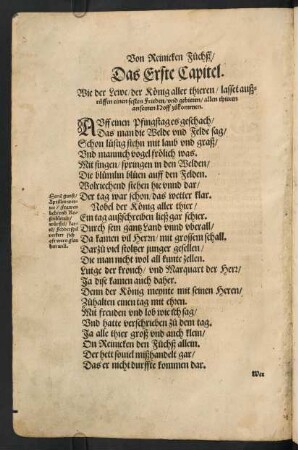 Von Reinicken Füchß/
Das Erste Capitel.
Wie der Lewe/ der König aller thieren/ lasset auß-
rüffen einen festen Frieden/ vnd gebieten/ allen thieren
an seinen Hoff zůkommen.
AVff einen Pfingstag es geschach/
Das man die Welde vnd Felde sag/
Schon lüstig stehn mit laub vnd graß/
Vnd mannich vogel frölich was.
Mit singen/ springen in den Welden/
Die blümlin blüen auff den Felden.
Wolriechend stehen hie vnnd dar/
Der tag war schön/ das wetter klar.
Nobel der König aller thier/
Ein tag außschreiben ließ gar schier.
Durch sein gantz Land vnnd vberall/
Da kamen vil Herrn/ mit grossem schall.
Darzů viel stoltzer junger gesellen/
Die man nicht wol all kunte zellen.
Lütge der kronch/ vnd Marquart der Herz/
Ja dise kamen auch daher.
Denn der König meynte mit seinen Heren/
Zůhalten einen tag mit ehren.
Mit freuden vnd lob wie ich sag/
Vnd hatte verschrieben zů dem tag.
Ja alle thier groß vnd auch klein/
On Reinicken den Füchß allein.
Der hett souiel mißhandelt gar/
Das er nicht durffte kommen dar.
Wer